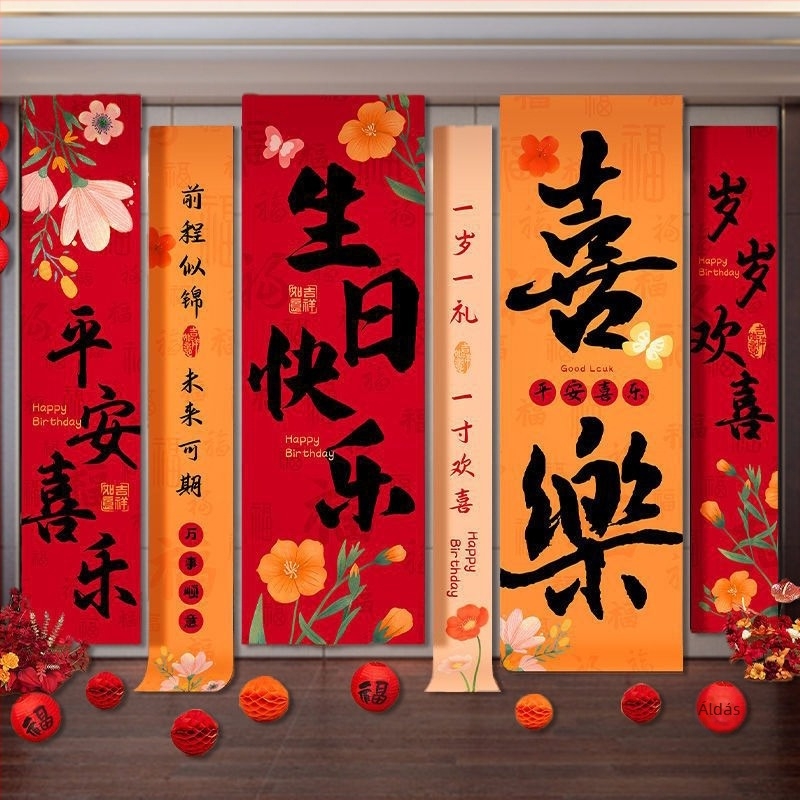 平安喜乐
Happy
Birthday
吉祥
如意
前程似锦
未来可期
万事顺意
生日快乐
吉祥
如意
Happy
Birthday
一岁一礼
一寸欢喜
Happy
Birthday
喜
Good Lcuk
平安喜乐
樂
岁岁欢喜
Happy
Birthday
福
福
Aldás